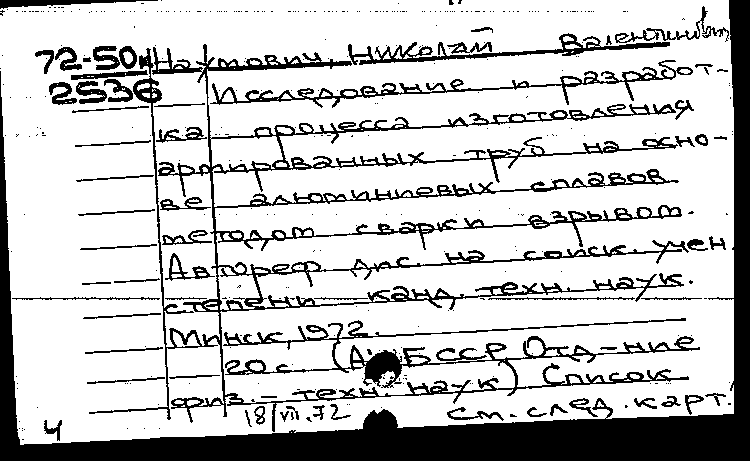 72-50к Наумович, Николай Валентинович
2536 Исследование и разработ-
ка процесса изготовления
армированных труб на осно-
ве алюминиевых сплавов
методом сварки взрывом.
Автореф. дис. на соиск. учен.
степени канд. техн. наук.
Минск, 1972.
20 с. (АН БССР Отд-ние
физ.-техн. наук) Список
18/VII.72 см. след. карт.
4